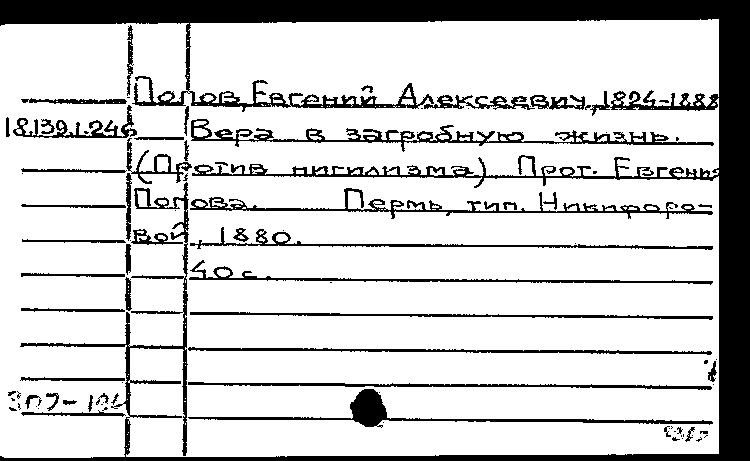 Попов, Евгений Алексеевич, 1824-1888
18.139.1.246 Вера в загробную жизнь.
(Против нигилизма) Прот. Евгения
Попова. Пермь, тип. Никифоро-
вой, 1880.
40 с.